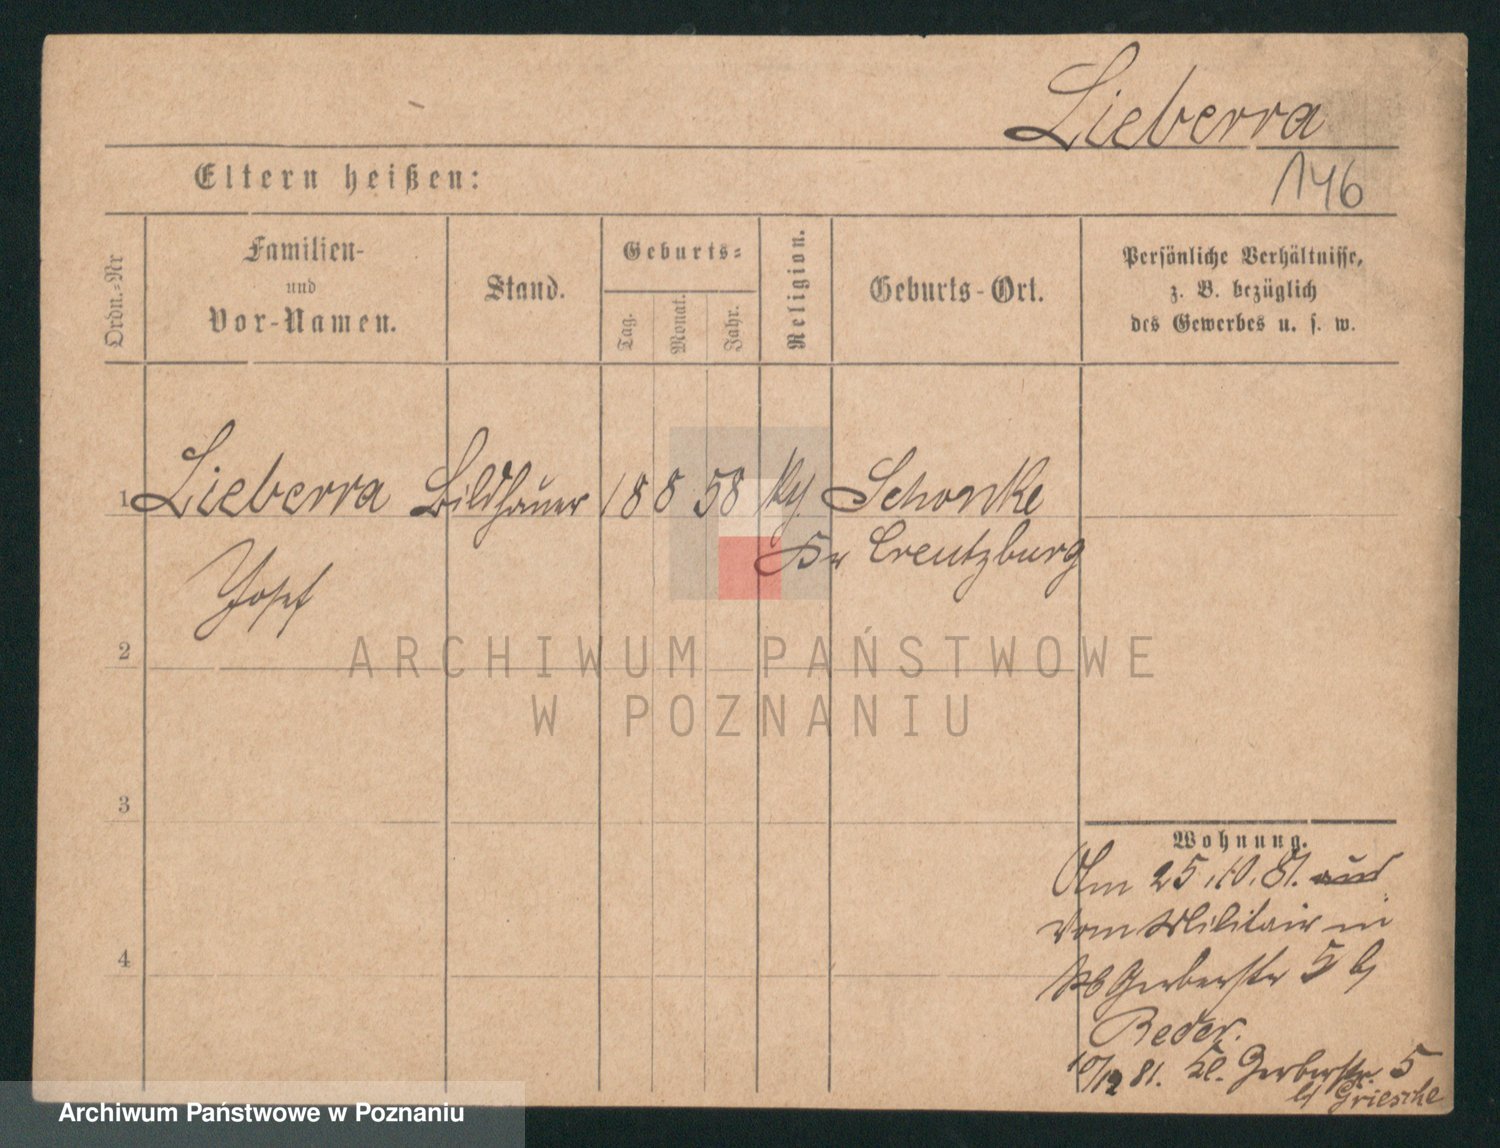 Lieberra
146
Eltern heißen:
Ordn.-Nr
Familien-
und
Vor-Namen.
Stand.
Geburts-
Tag.
Monat.
Jahr.
Religion.
Geburts-Ort.
Persönliche Verhältnisse,
z. B. bezüglich
des Gewerbes u. s. w.
1 Lieberra Bildhauer 18 8 58 Schonke
Kr Creutzburg
Josef
2
3
4
Wohnung.
Am 25.10.81.
vom Militair in
Gerberstr 5 b/
Reder.
10/12 81. Kl. Gerberstr. 5
b/ Griesche
ARCHIWUM PAŃSTWOWE
W POZNANIU
Archiwum Państwowe w Poznaniu